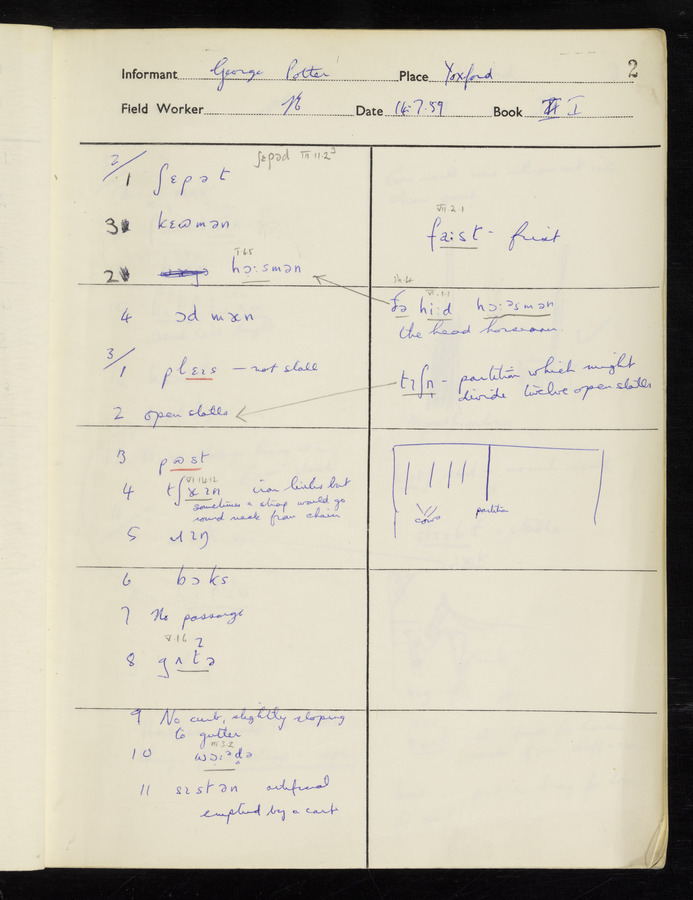 Informant George Potter Place Yoxford 2
Field Worker Date 14.7.59 Book I
2/ ʃɛpəd III 11.2 3
1 ʃɛpət
3 kɛʊmən
VII.2.1
fəːst - first
I.1.5
2 hɔːsmən
VI.1.1
ðə hiːd hɔːəsmən
the head horseman
4 ɔd mæn
3/
1 plɛɪs - not stall
tɪʃn̩ - partition which might
divide twelve open stalls
2 open stalls
3 pʊst
VI.14.12
4 tʃæɪn iron links but
sometimes a strap would go
round neck from chain
5 ɹɪŋ
cows partition
6 bɔks
7 No passage
V.1.6
8 gʌtə
9 No curb, slightly sloping
to gutter
III.3.2
10 wɔːədə
11 sɪstən artificial
emptied by a cart